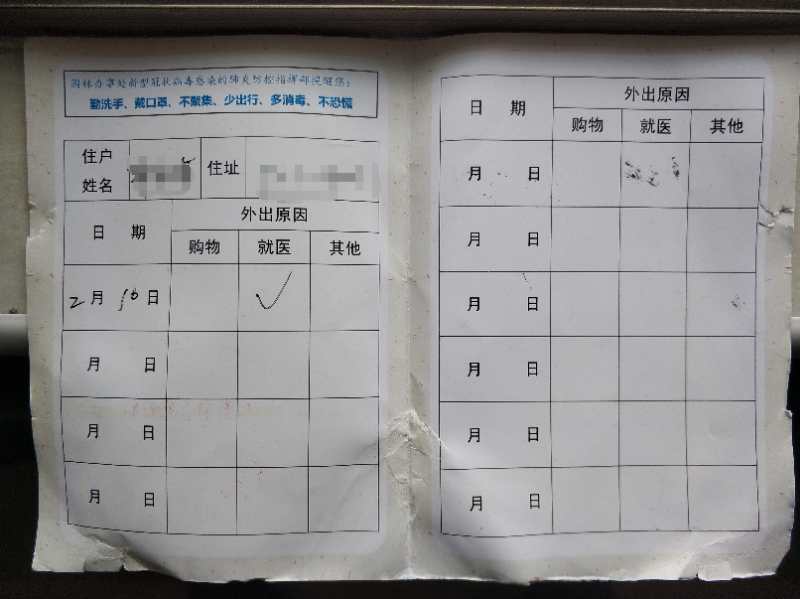 园林办事处新型冠状病毒感染的肺炎防控指挥部提醒您：
勤洗手、戴口罩、不聚集、少出行、多消毒、不恐慌
住户姓名 住址
日 期 外出原因
购物 就医 其他
2月10日 ✓
月 日
月 日
月 日
日 期 外出原因
购物 就医 其他
月 日
月 日
月 日
月 日
月 日
月 日